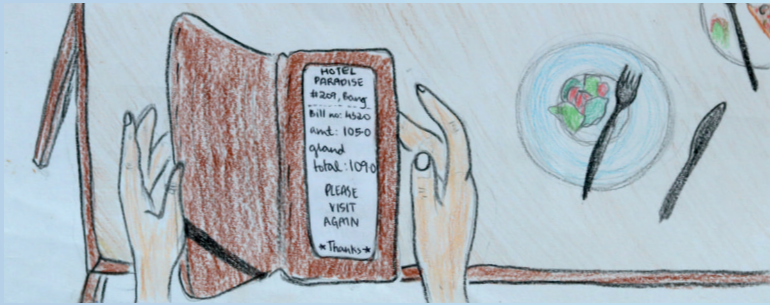 HOTEL
PARADISE
#209, Bang
Bill no: 4520
amt: 1050
grand
total: 1090
PLEASE
VISIT
AGAIN
*Thanks*